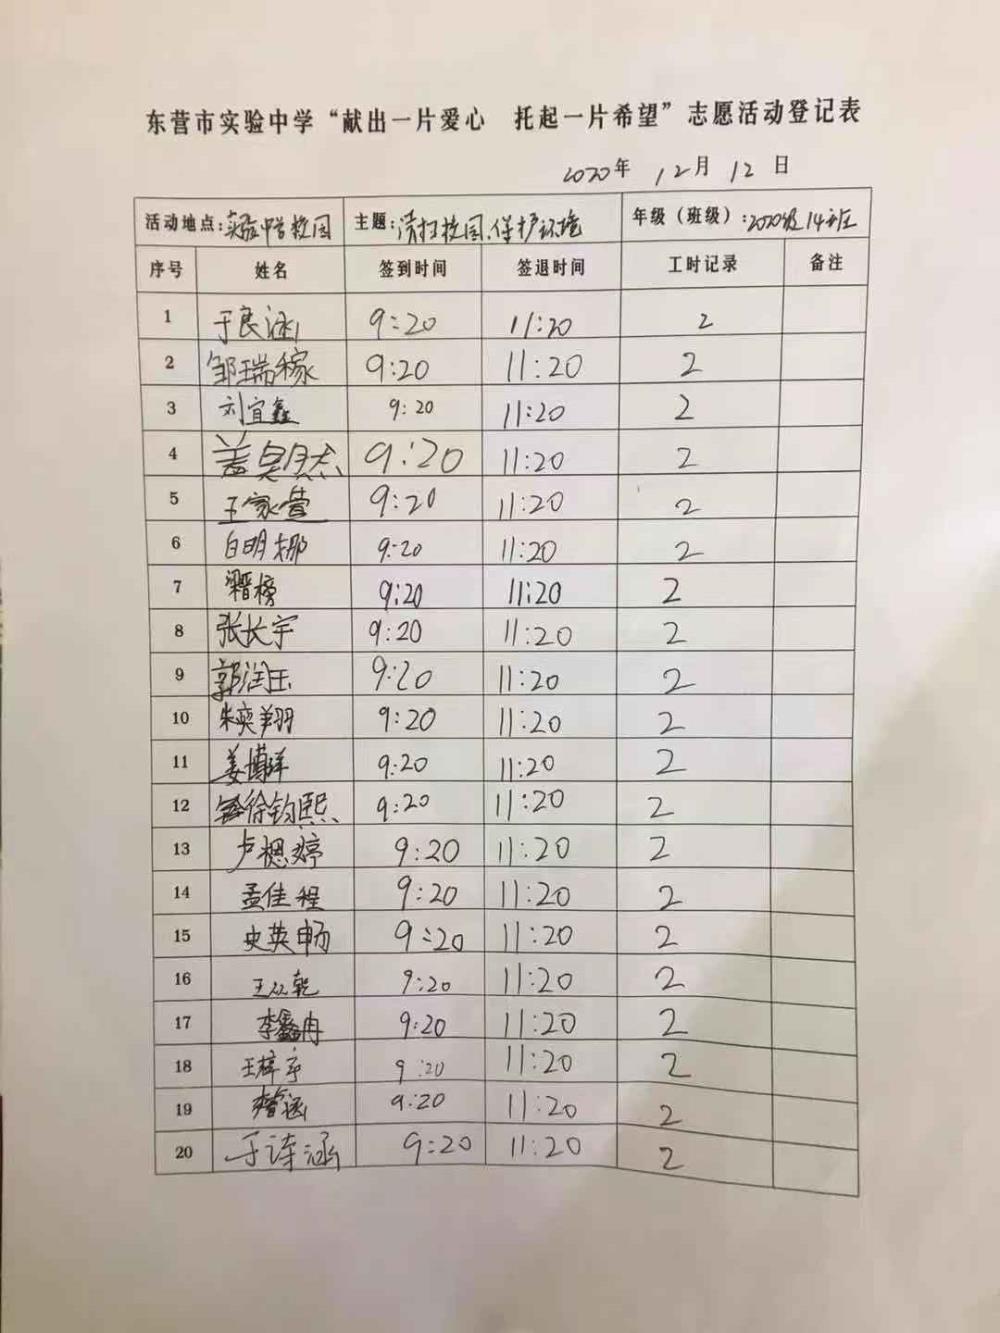 东营市实验中学“献出一片爱心 托起一片希望”志愿活动登记表
2020年 12月 12日
活动地点:实验中学校园 主题:清扫校园、保护环境 年级（班级）:2020级14班
序号 姓名 签到时间 签退时间 工时记录 备注
1 于良涵 9:20 11:20 2
2 邹瑞稼 9:20 11:20 2
3 刘宜鑫 9:20 11:20 2
4 盖昊然 9:20 11:20 2
5 王家萱 9:20 11:20 2
6 白明娜 9:20 11:20 2
7 9:20 11:20 2
8 张长宇 9:20 11:20 2
9 郭润玉 9:20 11:20 2
10 朱奕翔 9:20 11:20 2
11 姜博洋 9:20 11:20 2
12 徐钧熙 9:20 11:20 2
13 卢想婷 9:20 11:20 2
14 孟佳程 9:20 11:20 2
15 史英畅 9:20 11:20 2
16 王以乾 9:20 11:20 2
17 李鑫冉 9:20 11:20 2
18 王梓亭 9:20 11:20 2
19 9:20 11:20 2
20 于诗涵 9:20 11:20 2